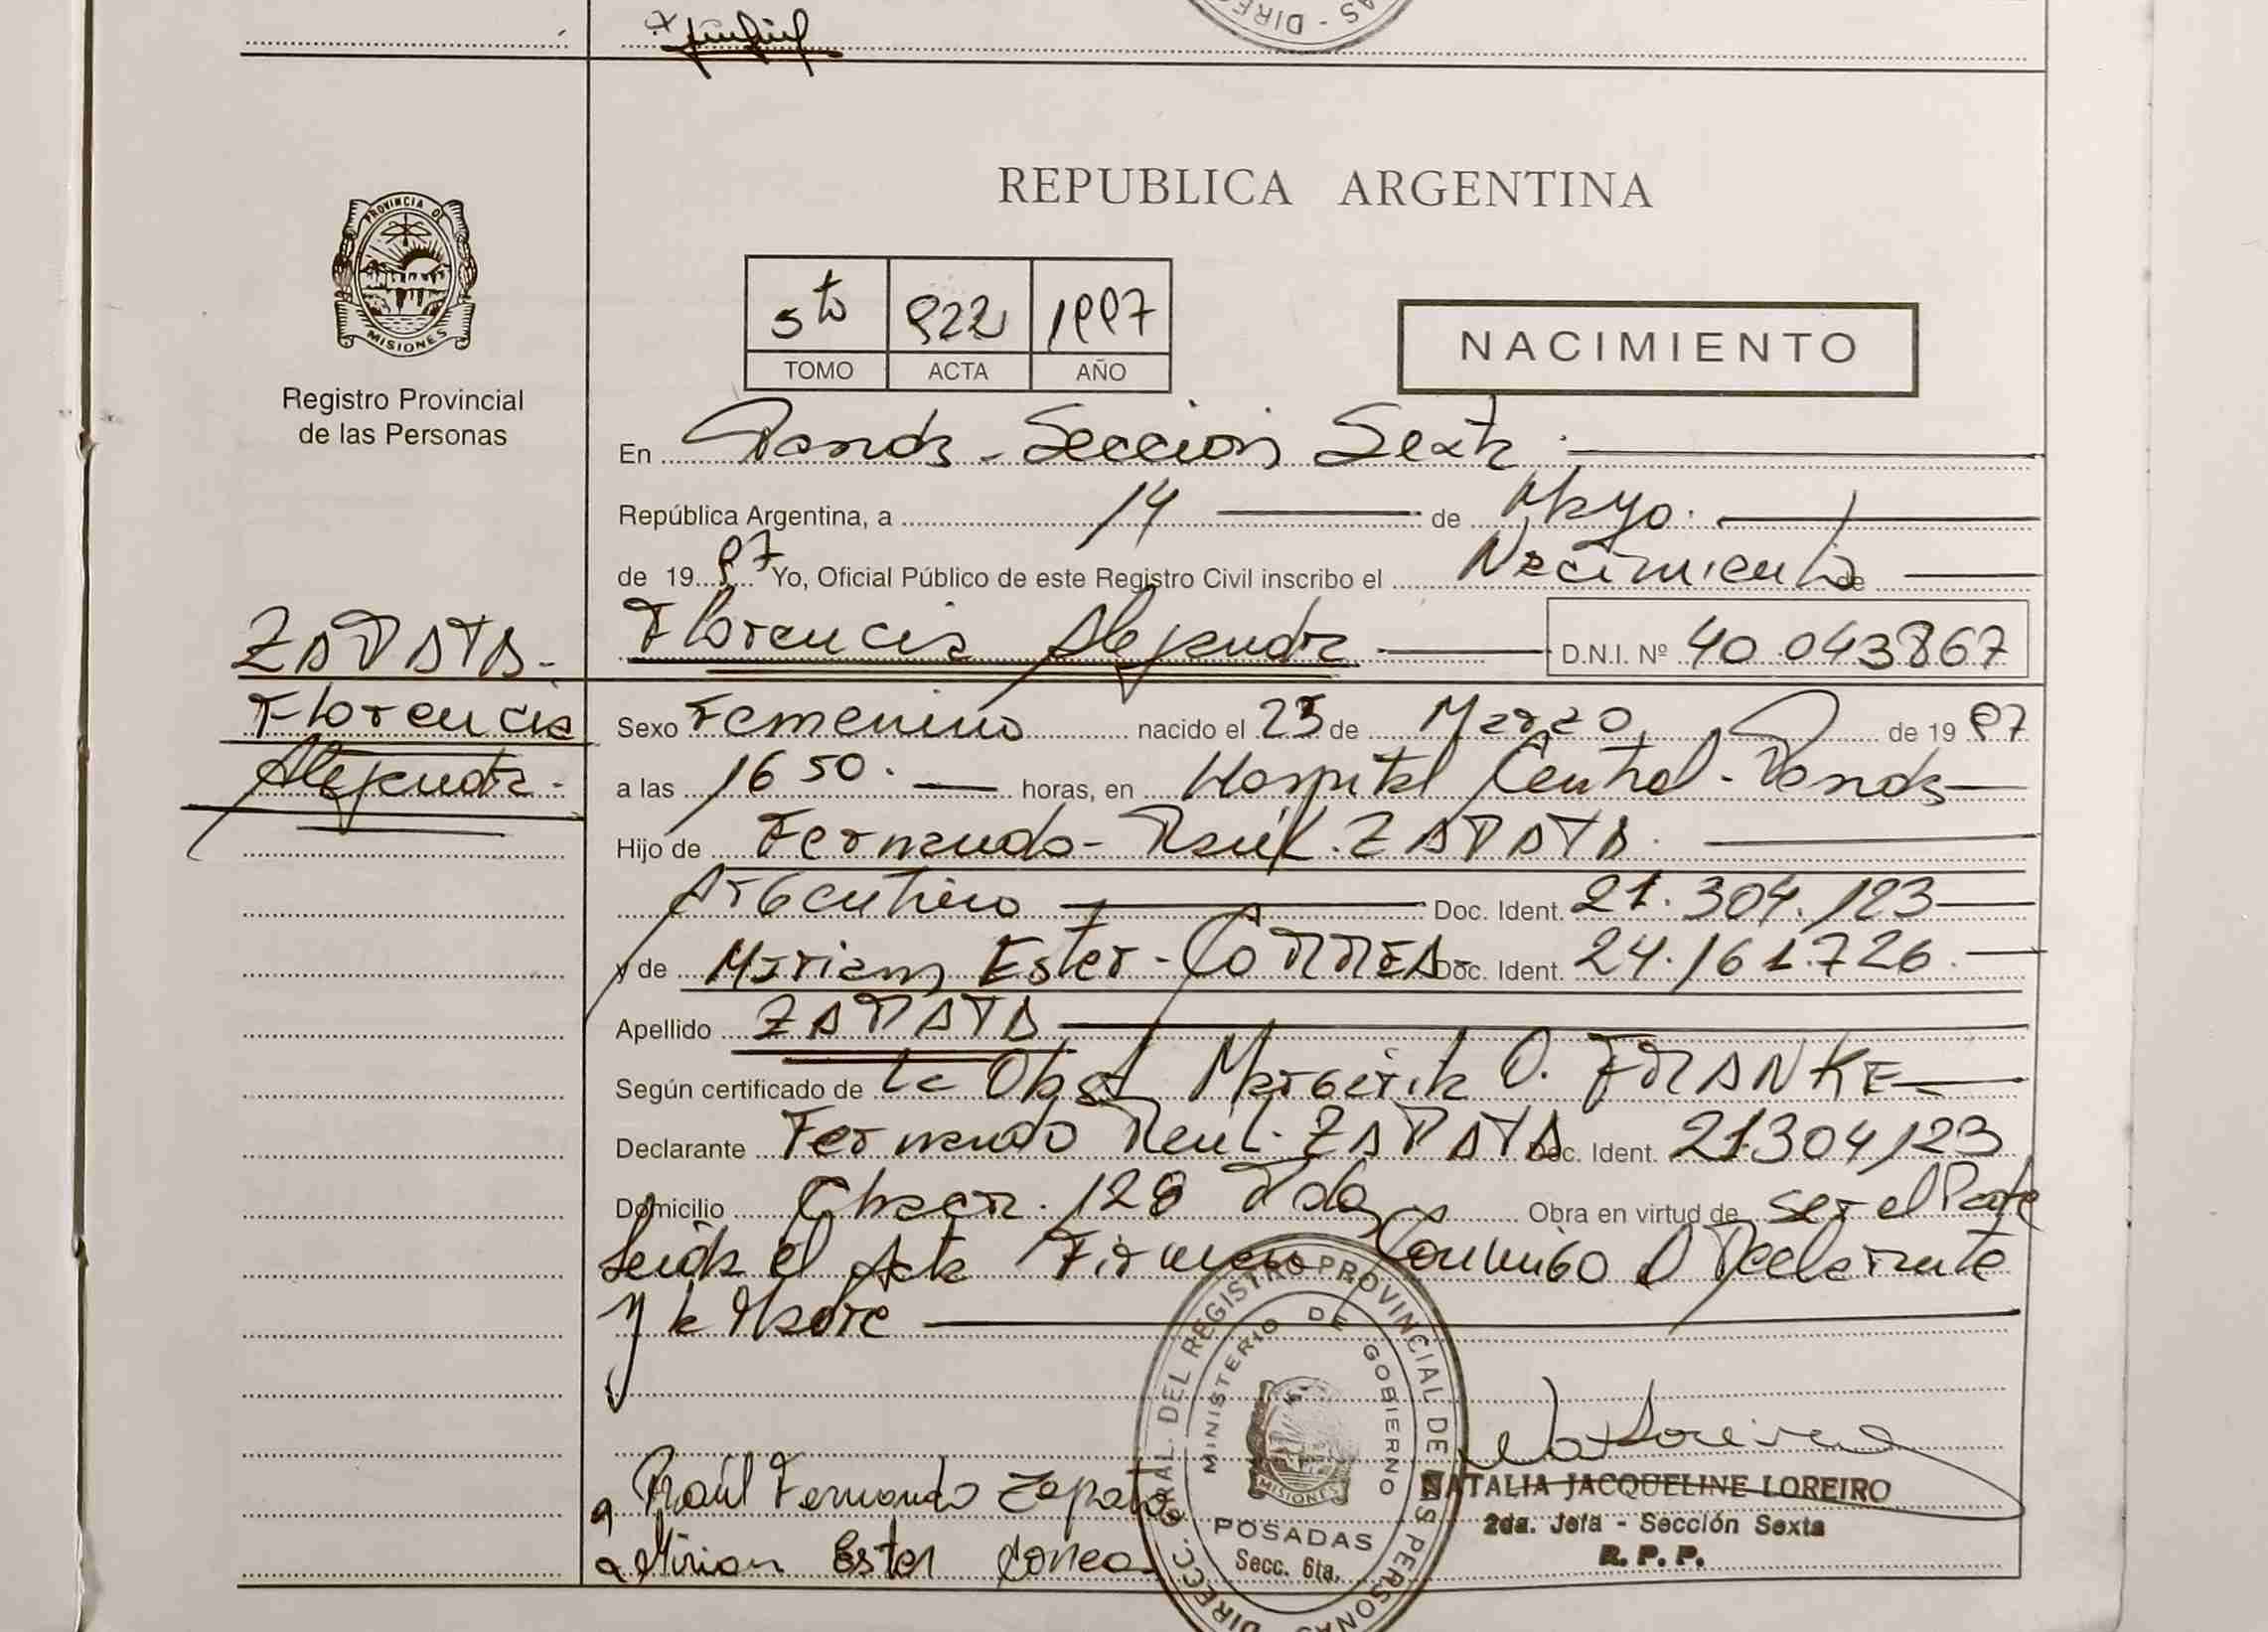 REPUBLICA ARGENTINA
PROVINCIA DE
MISIONES
Registro Provincial
de las Personas
5to 922 1997
TOMO ACTA AÑO
NACIMIENTO
En Posadas - Sección Sexta
República Argentina, a 14 de Mayo.
de 19 97 Yo, Oficial Público de este Registro Civil inscribo el Nacimiento de
Florencia Alejandra D.N.I. Nº 40 043867
ZAPATA -
Florencia
Alejandra -
Sexo Femenino nacido el 25 de Marzo de 19 97
a las 16 50. horas, en Hospital Central - Posadas
Hijo de Fernando - Raúl. ZAPATA.
Argentino Doc. Ident. 21.304.123
y de Miriam Ester - CORREA Doc. Ident. 24.161.726.
Apellido ZAPATA
Según certificado de la Obst. Margarita O. FRANKE
Declarante Fernando Raul. ZAPATA Doc. Ident. 21304123
Domicilio Chacra. 128 Pdas Obra en virtud de ser el Padre
Leída el Acta Firman Conmigo el Declarante
y la Madre
Raúl Fernando Zapata
Mirian Ester Correa
DIRECC. GRAL. DEL REGISTRO PROVINCIAL DE LAS PERSONAS
MINISTERIO DE GOBIERNO
MISIONES
POSADAS
Secc. 6ta.
NATALIA JACQUELINE LOREIRO
2da. Jefa - Sección Sexta
R. P. P.